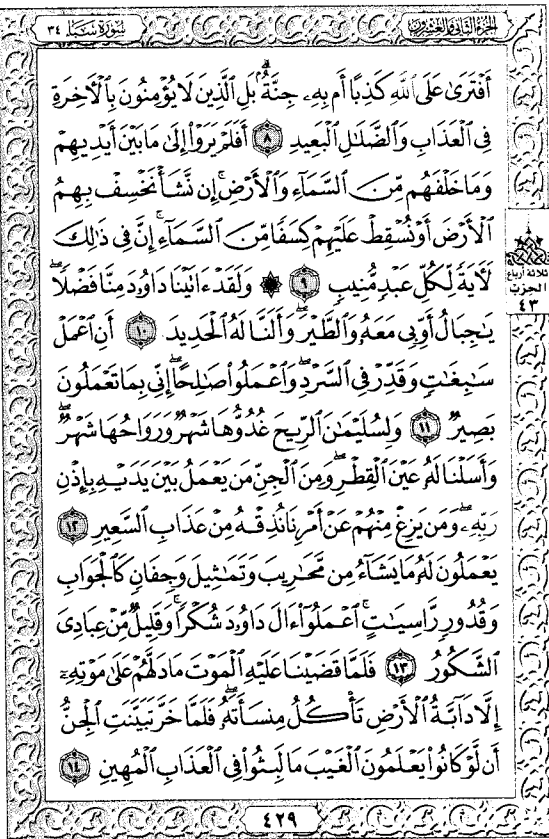 الجزء الثاني والعشرون
سورة سبأ ٣٤
أَفْتَرَىٰ عَلَى ٱللَّهِ كَذِبًا أَم بِهِۦ جِنَّةٌۢ ۗ بَلِ ٱلَّذِينَ لَا يُؤْمِنُونَ بِٱلْأَخِرَةِ
فِى ٱلْعَذَابِ وَٱلضَّلَٰلِ ٱلْبَعِيدِ ٨ أَفَلَمْ يَرَوْا۟ إِلَىٰ مَا بَيْنَ أَيْدِيهِمْ
وَمَا خَلْفَهُم مِّنَ ٱلسَّمَآءِ وَٱلْأَرْضِ ۚ إِن نَّشَأْ نَخْسِفْ بِهِمُ
ٱلْأَرْضَ أَوْ نُسْقِطْ عَلَيْهِمْ كِسَفًا مِّنَ ٱلسَّمَآءِ ۚ إِنَّ فِى ذَٰلِكَ
لَأَيَةً لِّكُلِّ عَبْدٍ مُّنِيبٍ ٩ ۞ وَلَقَدْ ءَاتَيْنَا دَاوُۥدَ مِنَّا فَضْلًا ۖ
يَٰجِبَالُ أَوِّبِى مَعَهُۥ وَٱلطَّيْرَ ۖ وَأَلَنَّا لَهُ ٱلْحَدِيدَ ١٠ أَنِ ٱعْمَلْ
سَٰبِغَٰتٍ وَقَدِّرْ فِى ٱلسَّرْدِ ۖ وَٱعْمَلُوا۟ صَٰلِحًا ۖ إِنِّى بِمَا تَعْمَلُونَ
بَصِيرٌ ١١ وَلِسُلَيْمَٰنَ ٱلرِّيحَ غُدُوُّهَا شَهْرٌ وَرَوَاحُهَا شَهْرٌ ۖ
وَأَسَلْنَا لَهُۥ عَيْنَ ٱلْقِطْرِ ۖ وَمِنَ ٱلْجِنِّ مَن يَعْمَلُ بَيْنَ يَدَيْهِ بِإِذْنِ
رَبِّهِۦ ۖ وَمَن يَزِغْ مِنْهُمْ عَنْ أَمْرِنَا نُذِقْهُ مِنْ عَذَابِ ٱلسَّعِيرِ ١٢
يَعْمَلُونَ لَهُۥ مَا يَشَآءُ مِن مَّحَٰرِيبَ وَتَمَٰثِيلَ وَجِفَانٍ كَٱلْجَوَابِ
وَقُدُورٍ رَّاسِيَٰتٍ ۚ ٱعْمَلُوٓا۟ ءَالَ دَاوُۥدَ شُكْرًا ۚ وَقَلِيلٌ مِّنْ عِبَادِىَ
ٱلشَّكُورُ ١٣ فَلَمَّا قَضَيْنَا عَلَيْهِ ٱلْمَوْتَ مَا دَلَّهُمْ عَلَىٰ مَوْتِهِۦٓ
إِلَّا دَآبَّةُ ٱلْأَرْضِ تَأْكُلُ مِنسَأَتَهُۥ ۖ فَلَمَّا خَرَّ تَبَيَّنَتِ ٱلْجِنُّ
أَن لَّوْ كَانُوا۟ يَعْلَمُونَ ٱلْغَيْبَ مَا لَبِثُوا۟ فِى ٱلْعَذَابِ ٱلْمُهِينِ ١٤
ثلاثة أرباع
الحزب
٤٣
٤٢٩